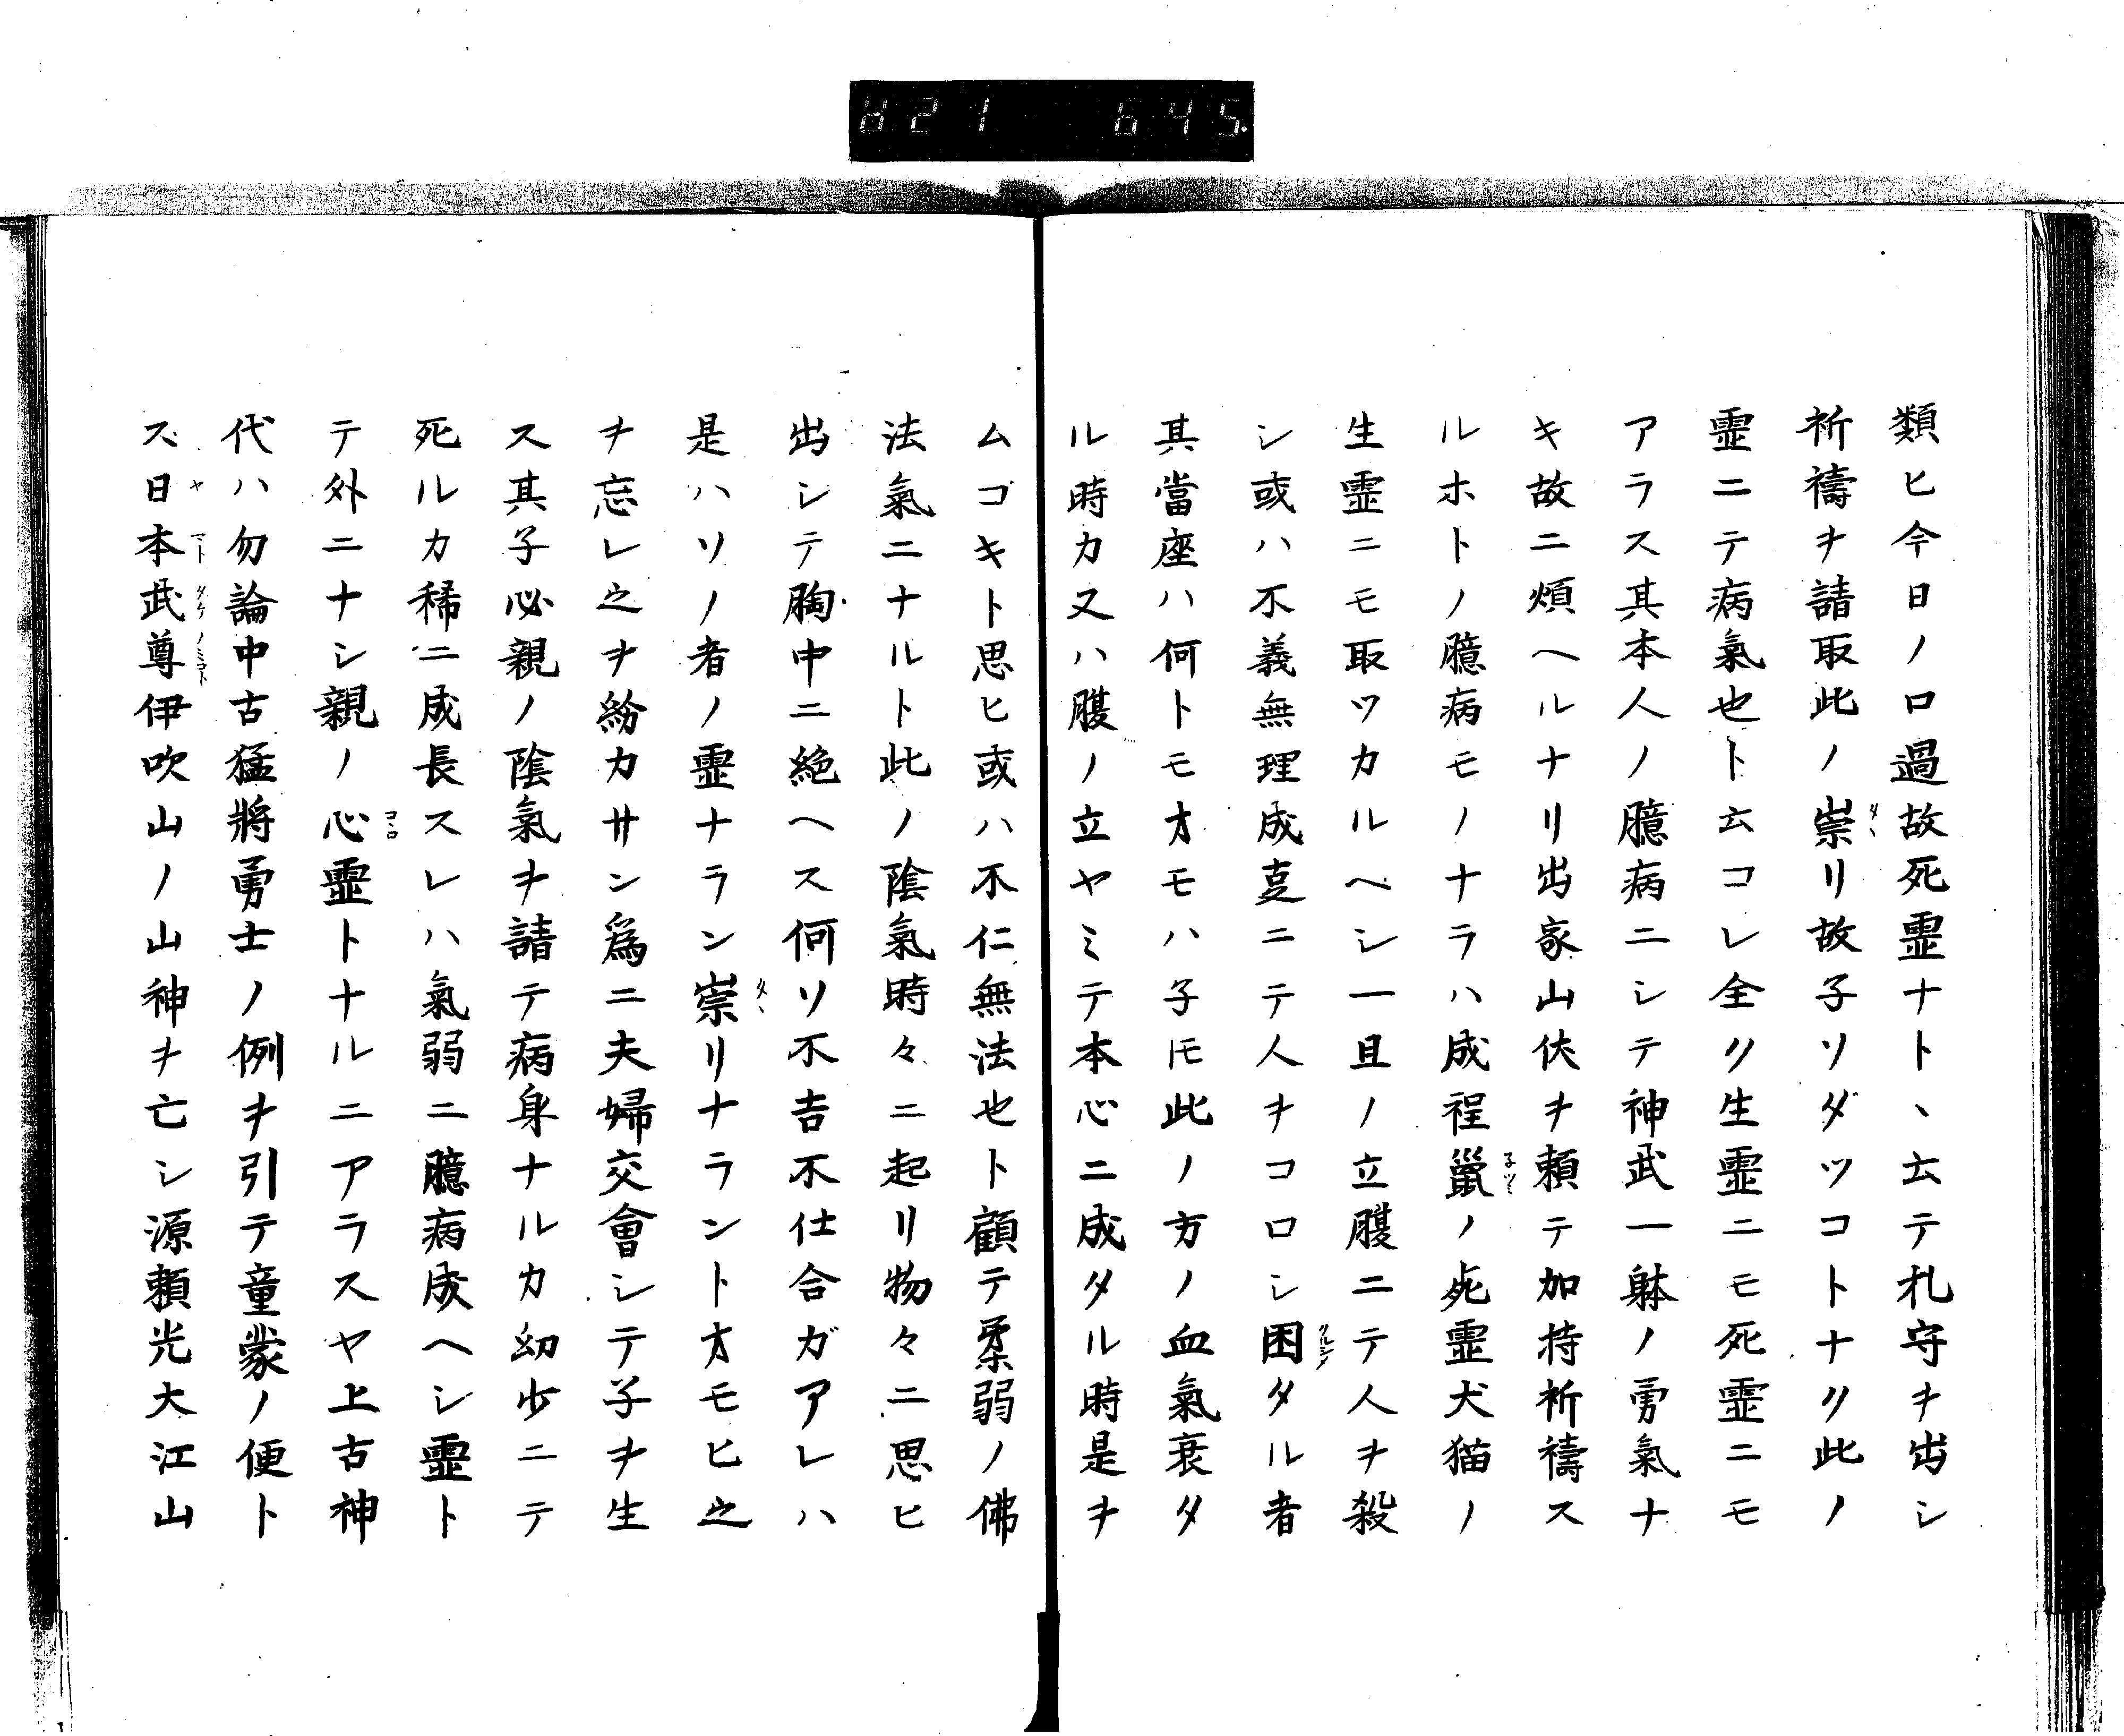 821 645.
類ヒ今日ノ口過故死霊ナト、云テ札守ヲ出シ
祈禱ヲ請取此ノ崇リ故子ソダツコトナク此ノ
霊ニテ病氣也ト云コレ全ク生霊ニモ死霊ニモ
アラス其本人ノ臆病ニシテ神武一躰ノ勇氣ナ
キ故ニ煩ヘルナリ出家山伏ヲ頼テ加持祈禱ス
ルホトノ臆病モノナラハ成程鼠ノ死霊犬猫ノ
生霊ニモ取ツカルヘシ一旦ノ立腹ニテ人ヲ殺
シ或ハ不義無理成㕝ニテ人ヲコロシ困タル者
其當座ハ何トモオモハ子𪜈此ノ方ノ血氣衰タ
ル時カ又ハ腹ノ立ヤミテ本心ニ成タル時是ヲ
ムゴキト思ヒ或ハ不仁無法也ト顧テ柔弱ノ佛
法氣ニナルト此ノ陰氣時々ニ起リ物々ニ思ヒ
出シテ胸中ニ絶ヘス何ソ不吉不仕合ガアレハ
是ハソノ者ノ霊ナラン崇リナラントオモヒ之
ヲ忘レ之ヲ紛カサン爲ニ夫婦交會シテ子ヲ生
ス其子必親ノ陰氣ヲ請テ病身ナルカ幼少ニテ
死ルカ稀ニ成長スレハ氣弱ニ臆病成ヘシ霊ト
テ外ニナシ親ノ心霊トナルニアラスヤ上古神
代ハ勿論中古猛將勇士ノ例ヲ引テ童蒙ノ便ト
ス日本武尊伊吹山ノ山神ヲ亡シ源頼光大江山